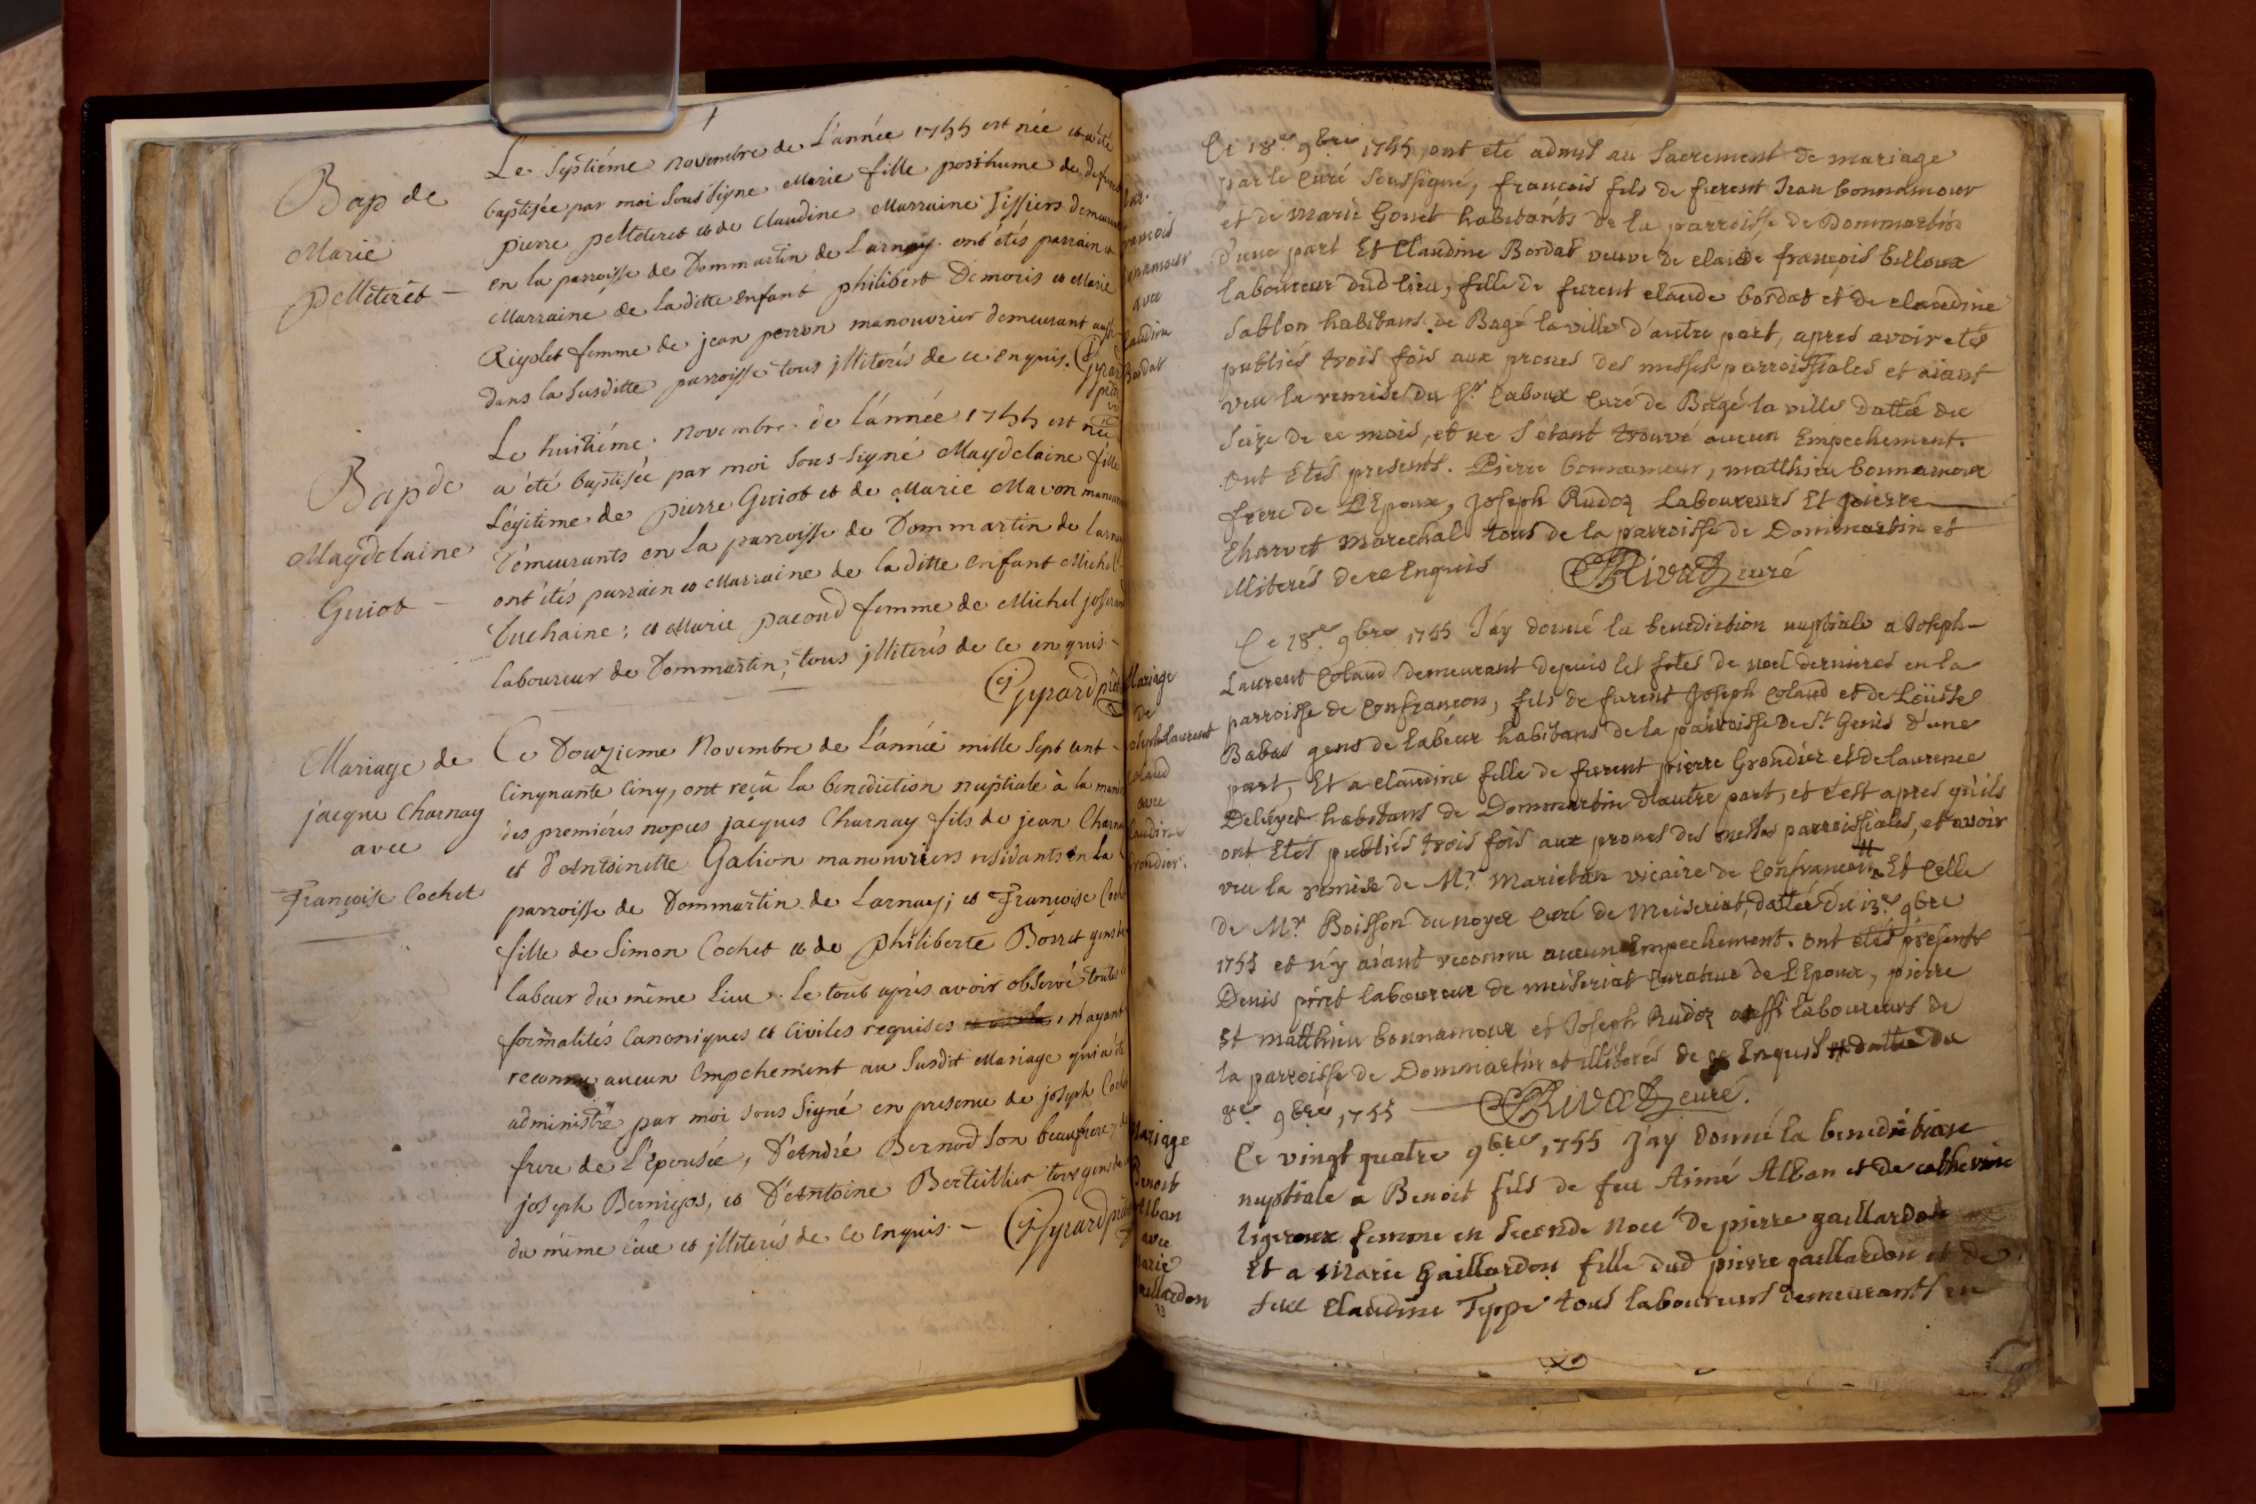 Bap de
Marie
pelleteret
Le Septiéme novembre de L'année 1755 est née et a été
baptisée par moi sous signé Marie fille posthume de defunt
pierre pelleteret et de Claudine Marraine Tissiers demeurant
en la parroisse de Dommartin de Larnay. ont étés parrain et
Marraine de laditte enfant philibert Demoris et Marie
Rigolet femme de jean perron manouvrier demeurant aussi
dans la susditte parroisse tous jlliterés de ce enquis. Gyrard
Bap de
Magdelaine
Guiot
Le huitiéme novembre de l'année 1755 est née
a été baptisée par moi sous-signé Magdelaine fille
Légitime de pierre Guiot et de Marie Mavon
Demeurants en la parroisse de Dommartin de Larnay
ont étés parrain et Marraine de laditte enfant Michel
Tuchaine; et Marie pacoud femme de Michel
laboureur de Dommartin, tous jlliterés de ce enquis
Gyrard
Mariage de
jacque Charnay
avec
Françoise Cochet
Ce Douzieme Novembre de L'année mille sept cent
Cinquante Cinq, ont reçu la benediction nuptiale à la
des premiéres nopces jacques Charnay fils de jean Charnay
et D'Antoinette Galion manouvriers residants en la
parroisse de Dommartin de Larnay; et Françoise Cochet
fille de Simon Cochet et de philiberte Borret gens de
labeur du même lieu. Le tout après avoir observé toutes
formalités Canoniques et Civiles requises n'ayant
reconnu aucun empechement au susdit Mariage qui a été
administré par moi sous signé en presence de joseph Cochet
frere de L'épousée, D'André Bernod son beaufrere,
joseph Bernigos, et D'Antoine Berteillier tous gens de
du même lieu et jlliterés de ce enquis. Gyrard
françois
bonnamour
avec
Claudine
Bordat
Ce 18e 9bre 1755 ont eté admis au Sacrement de mariage
par le Curé soussigné, françois fils de furent Jean bonnamour
et de Marie Gonet habitants de la parroisse de Dommartin
d'une part Et Claudine Bordat veuve de claude françois billoux
laboureur dud lieu, fille de furent claude bordat et de claudine
Sablon habitans de Bagé la ville d'autre part, apres avoir etés
publiés trois fois aux prones des messes parroissiales et aiant
veu la remise du Sr Caboux Curé de Bagé la ville dattée du
seize de ce mois, et ne s'etant trouvé aucun Empechement.
ont Etés presents. Pierre bonnamour, matthieu bonnamour
frere de L'Epoux, Joseph Rudoz Laboureurs Et pierre
Charvet Marechal tous de la parroisse de Dommartin et
illiterés de ce Enquis Rivat curé
Mariage
de
joseph Laurent
Colaud
avec
Claudine
Grondier
Ce 18e 9bre 1755 J'ay donné la benediction nuptiale a Joseph
Laurent Colaud demeurant depuis les fetes de noel dernieres en la
parroisse de Confrançon, fils de furent Joseph Colaud et de
Babas gens de labeur habitans de la parroisse de St Genis d'une
part, Et a claudine fille de furent pierre Grondier et de laurence
Delayet habitans de Dommartin d'autre part, et c'est apres qu'ils
ont Etés publiés trois fois aux prones des messes parroissiales, et avoir
veu la remise de Mr Marietan vicaire de Confrançon # Et Celle
de Mr Boisson du noyer Curé de Meiseriat, dattée du 13e 9bre
1755 et n'y aiant reconnu aucun Empechement. ont etés presents
Denis piret laboureur de meiseriat Curateur de L'Epoux, pierre
Et matthieu bonnamour et Joseph Rudoz aussi laboureurs de
la parroisse de Dommartin et illiterés de ce Enquis # dattée du
8e 9bre 1755 Rivat curé.
Mariage
Benoit
Alban
avec
Marie
gaillardon
Ce vingt quatre 9bre 1755 J'ay donné la benediction
nuptiale a Benoit fils de feu Aimé Alban et de catherine
ligeroux femme en seconde noce de pierre gaillardon
Et a Marie Gaillardon fille dud pierre gaillardon et de
feue Claudine Typpe tous laboureurs demeurants en